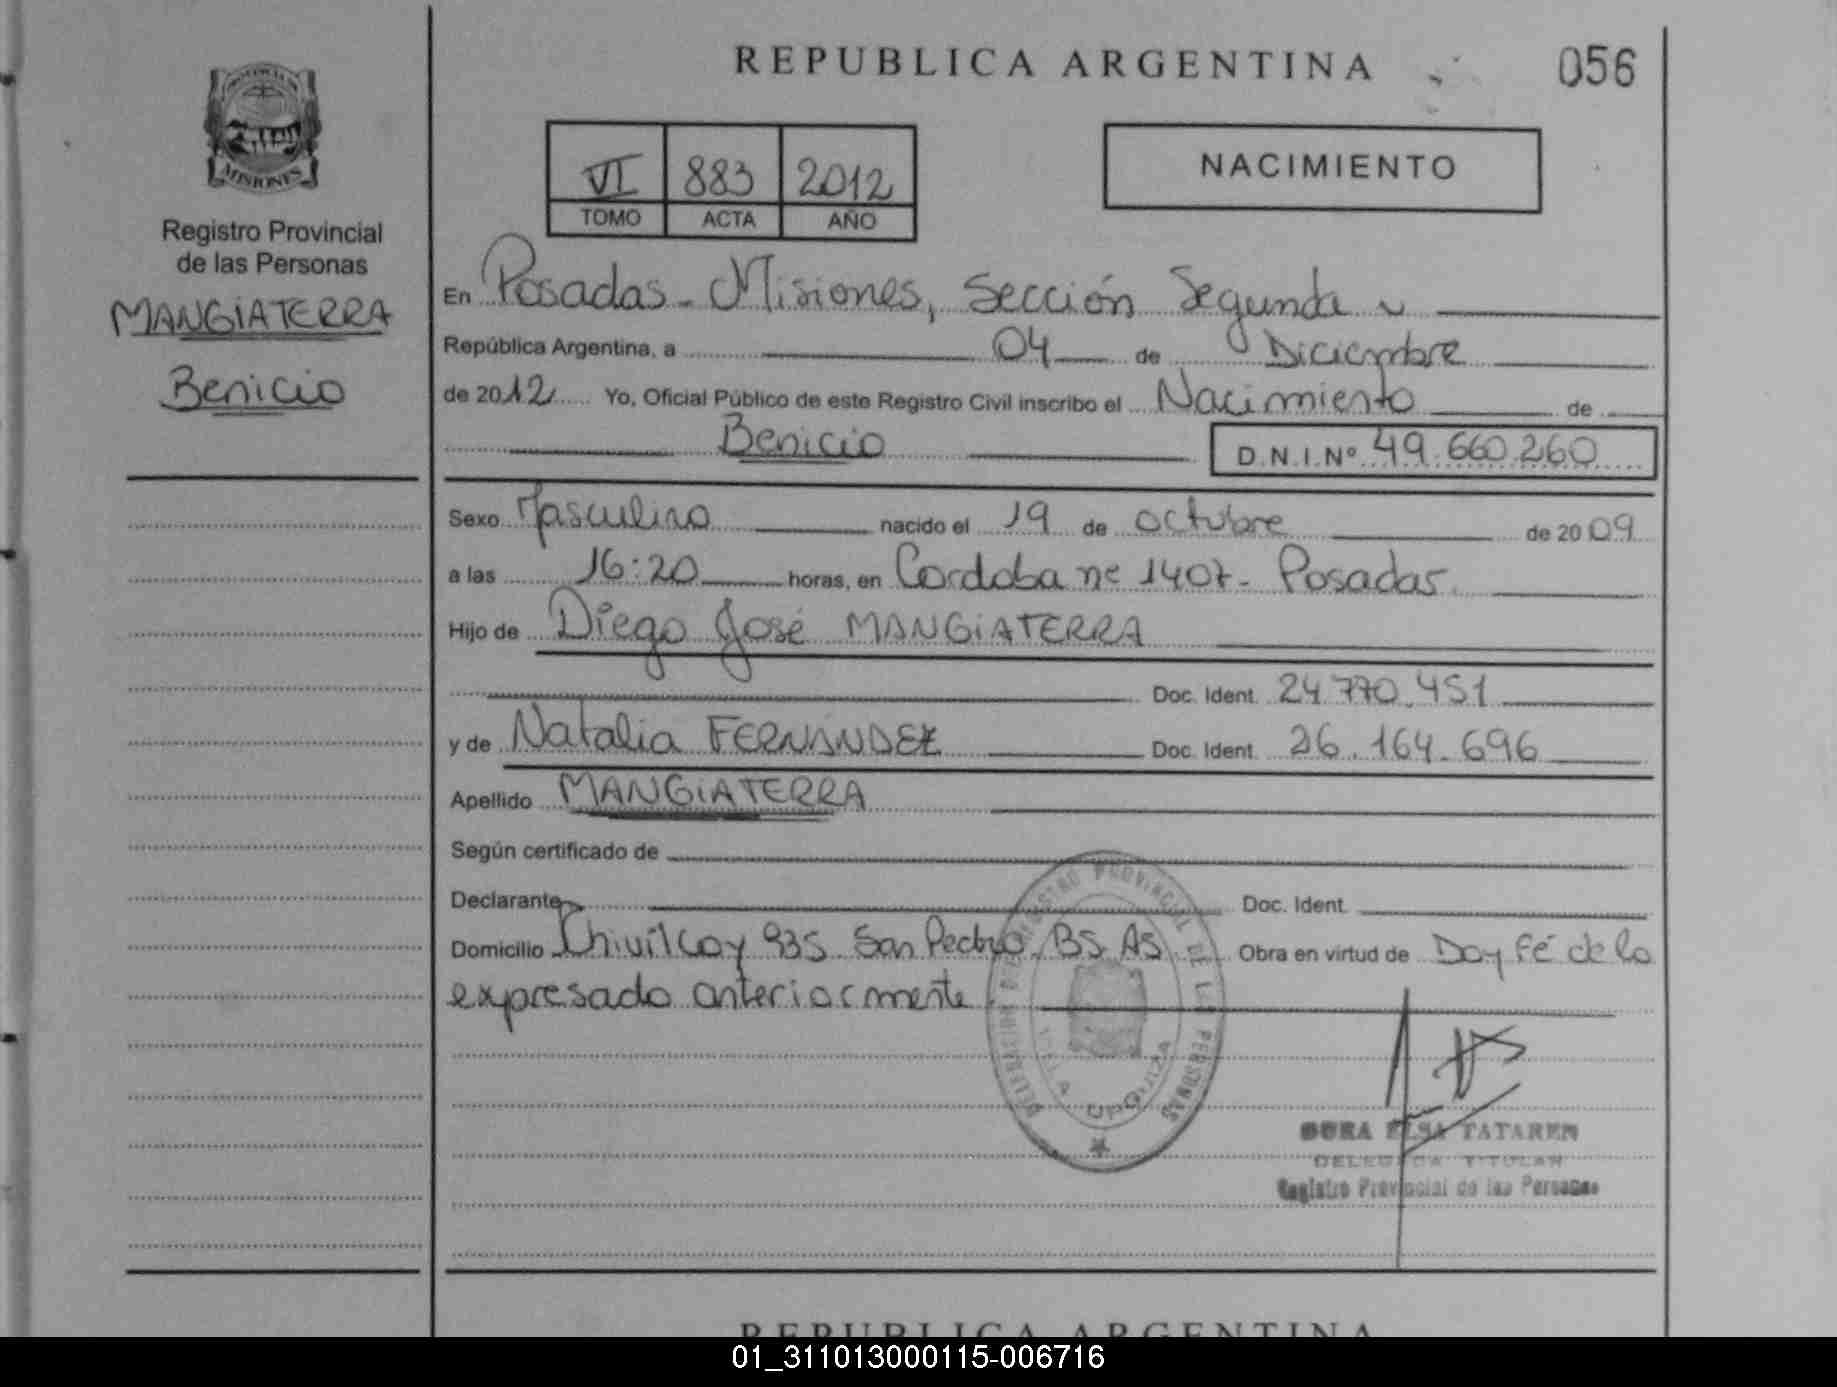 REPUBLICA ARGENTINA
056
PROVINCIA DE
MISIONES
VI 883 2012
TOMO ACTA AÑO
NACIMIENTO
Registro Provincial
de las Personas
MANGIATERRA
Benicio
En Posadas - Misiones, Sección Segunda
República Argentina, a 04 de Diciembre
de 2012 Yo, Oficial Público de este Registro Civil inscribo el Nacimiento de
Benicio D.N.I.Nº 49.660.260
Sexo Masculino nacido el 19 de octubre de 2009
a las 16:20 horas, en Cordoba nº 1407 - Posadas.
Hijo de Diego José MANGIATERRA
Doc. Ident. 24.770.451
y de Natalia FERNANDEZ Doc. Ident. 26.164.696
Apellido MANGIATERRA
Según certificado de
Declarante Doc. Ident.
Domicilio Chivilcoy 935 San Pedro. BS. AS. Obra en virtud de Doy Fé de lo
expresado anteriormente.
REGISTRO PROVINCIAL DE LAS PERSONAS
VILLA URQUIZA
ELSA TATAREN
DELEGADA TITULAR
Registro Provincial de las Personas
REPUBLICA ARGENTINA
01_311013000115-006716